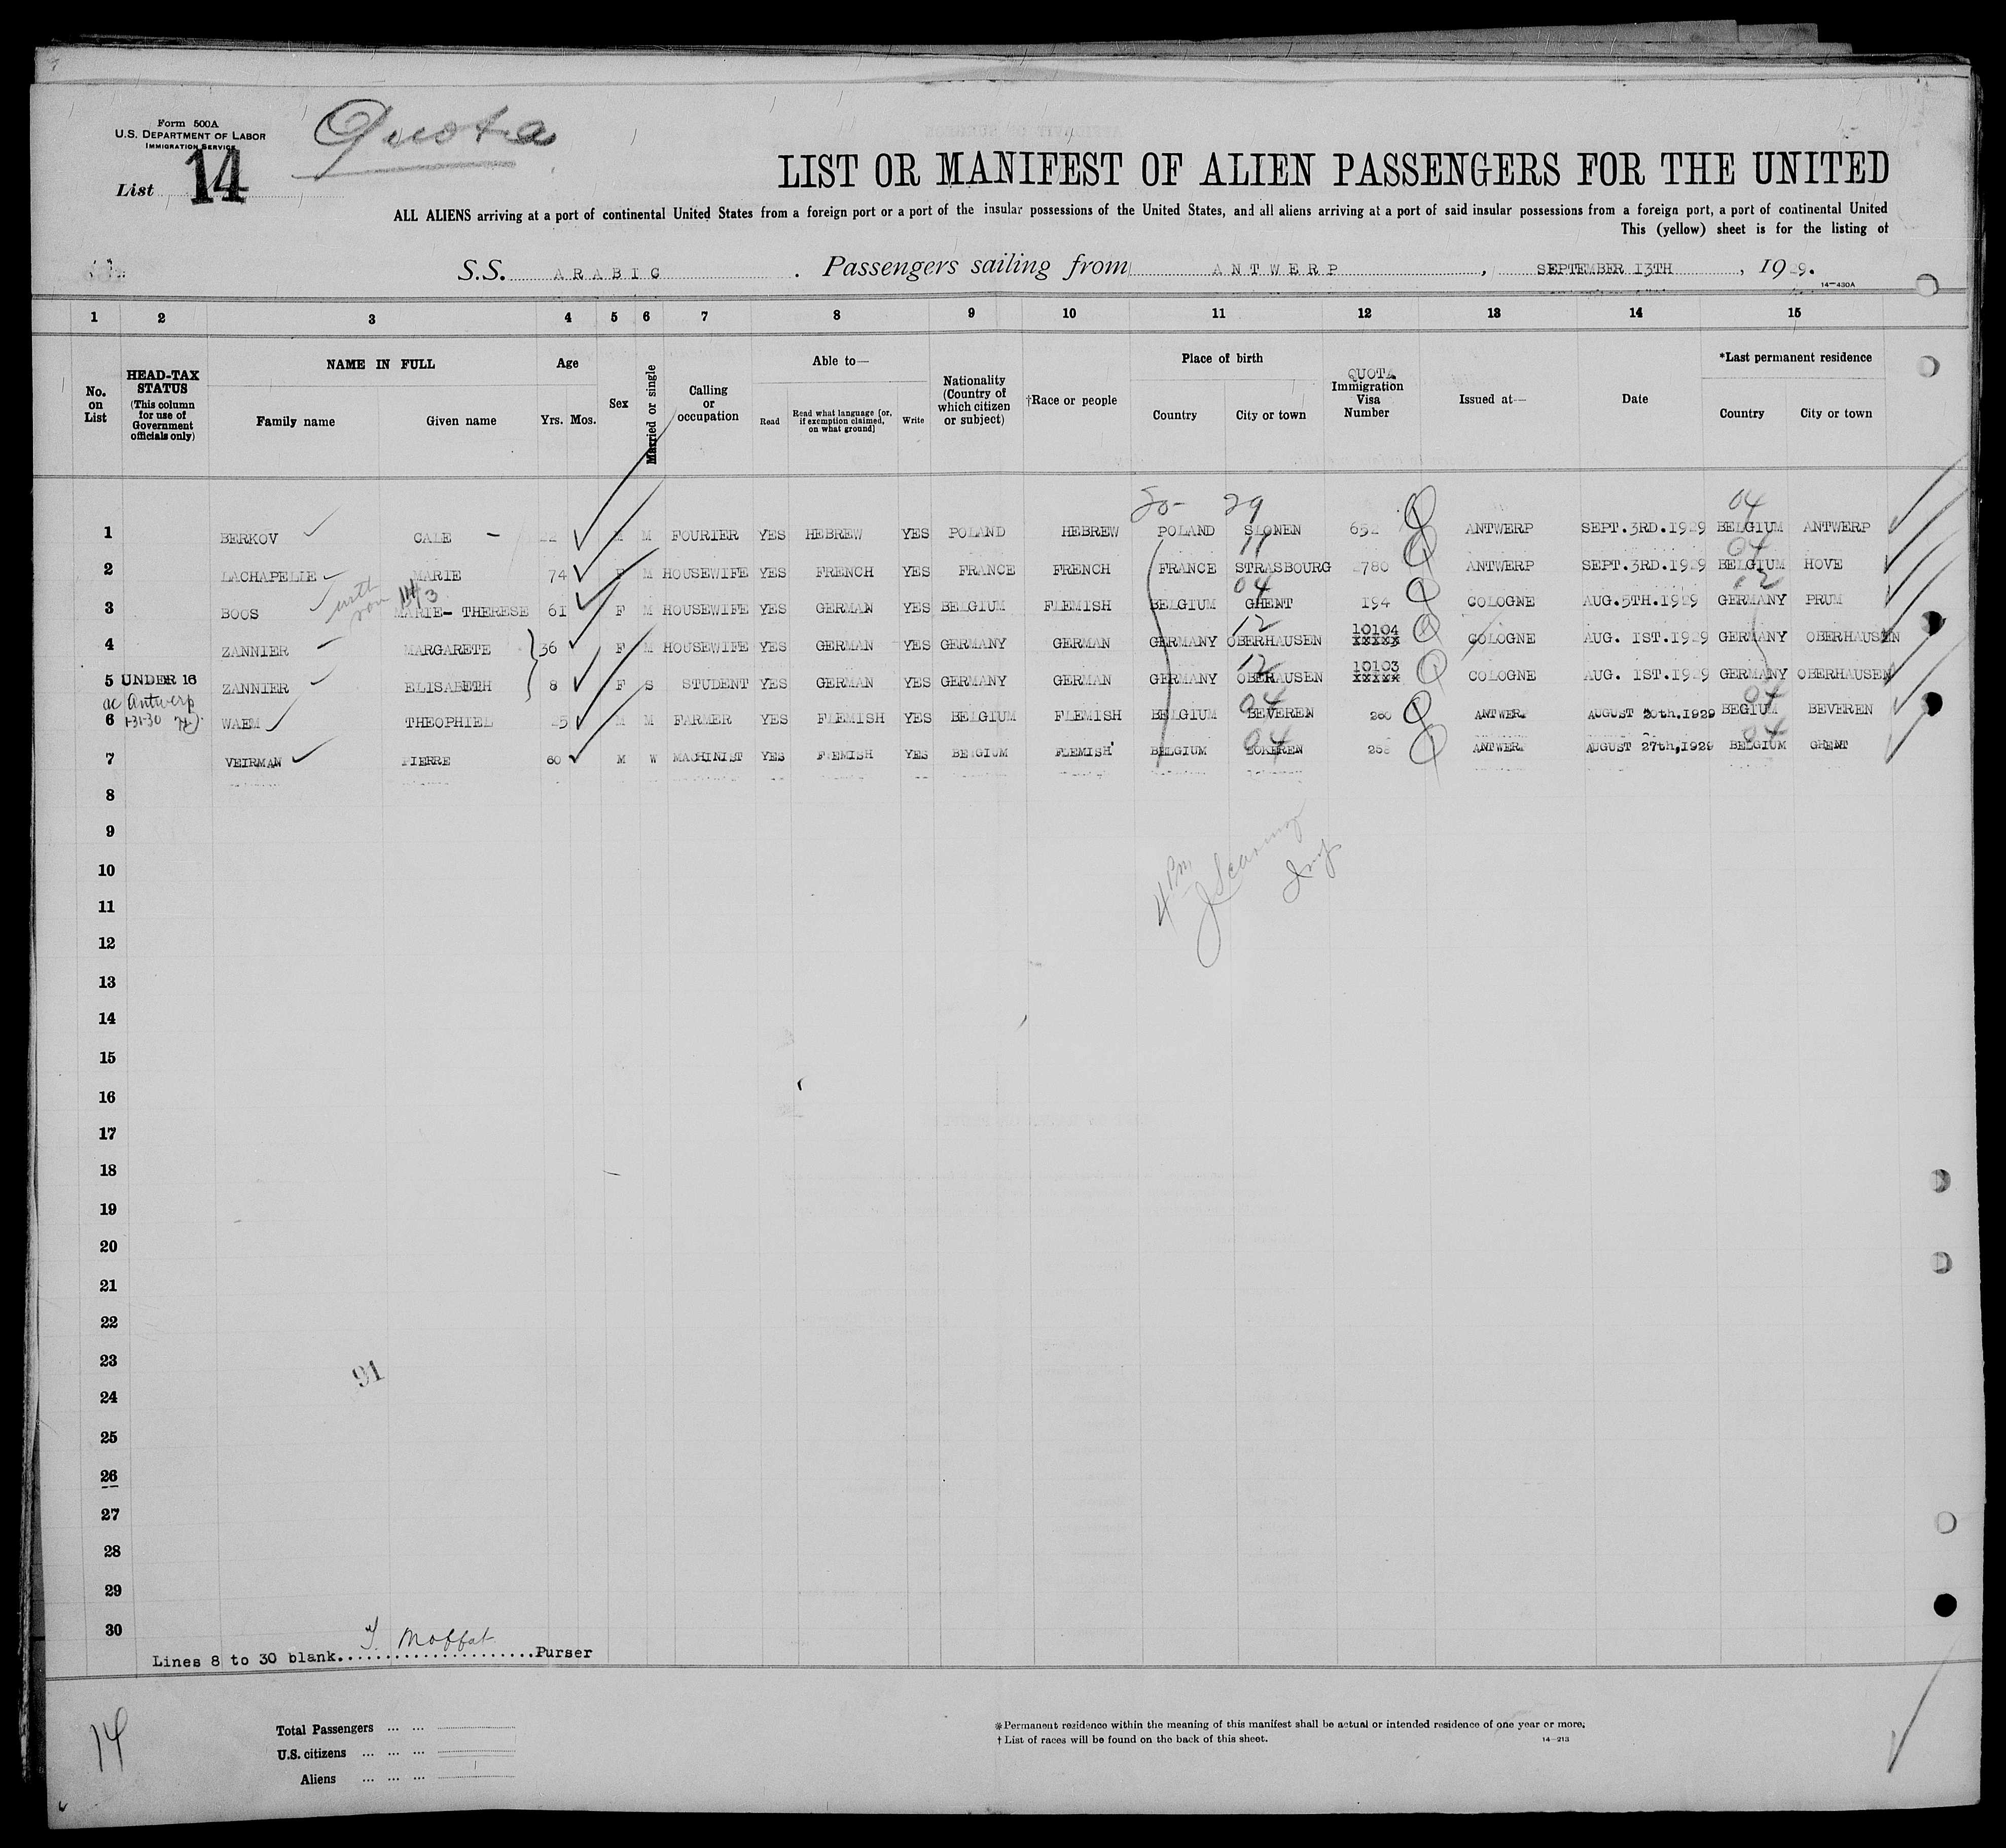 Form 500A
U.S. DEPARTMENT OF LABOR
IMMIGRATION SERVICE
Quota
List 14
LIST OR MANIFEST OF ALIEN PASSENGERS FOR THE UNITED
ALL ALIENS arriving at a port of continental United States from a foreign port or a port of the insular possessions of the United States, and all aliens arriving at a port of said insular possessions from a foreign port, a port of continental United
This (yellow) sheet is for the listing of
S.S. ARABIC . Passengers sailing from ANTWERP , SEPTEMBER 13TH , 1929.
14—430A
1 2 3 4 5 6 7 8 9 10 11 12 13 14 15
No. on List
HEAD-TAX STATUS (This column for use of Government officials only)
NAME IN FULL
Family name Given name
Age
Yrs. Mos.
Sex
Married or single
Calling or occupation
Able to—
Read Read what language [or, if exemption claimed, on what ground] Write
Nationality (Country of which citizen or subject)
†Race or people
Place of birth
Country City or town
QUOTA Immigration Visa Number
Issued at—
Date
*Last permanent residence
Country City or town
29 04
1 BERKOV CALE — M FOURIER YES HEBREW YES POLAND HEBREW POLAND SLONEN 652 ANTWERP SEPT.3RD.1929 BELGIUM ANTWERP
11 04
2 LACHAPELLE MARIE 74 F M HOUSEWIFE YES FRENCH YES FRANCE FRENCH FRANCE STRASBOURG 780 ANTWERP SEPT.3RD.1929 BELGIUM HOVE
with son 14/3 04 12
3 BOOS MARIE- THERESE 61 F M HOUSEWIFE YES GERMAN YES BELGIUM FLEMISH BELGIUM GHENT 194 COLOGNE AUG.5TH.1929 GERMANY PRUM
12 10104
4 ZANNIER MARGARETE 36 F M HOUSEWIFE YES GERMAN YES GERMANY GERMAN GERMANY OBERHAUSEN XXXXX COLOGNE AUG. 1ST.1929 GERMANY OBERHAUSEN
12 10103
5 UNDER 16 ZANNIER ELISABETH 8 F S STUDENT YES GERMAN YES GERMANY GERMAN GERMANY OBERAUSEN XXXXX COLOGNE AUG. 1ST.1929 GERMANY OBERHAUSEN
ac Antwerp 04 04
6 1-31-30 WAEM THEOPHIEL M M FARMER YES FLEMISH YES BELGIUM FLEMISH BELGIUM BEVEREN 260 ANTWER. AUGUST 20th.1929 BEGIUM BEVEREN
04 04
7 VEIRMAN PIERRE 60 M W MACHINIST YES FLEMISH YES BELGIUM FLEMISH BELGIUM LOKEREN 258 ANTWER. AUGUST 27th,1929 BELGIUM GHENT
8
9
10
4 Pm
11
12
13
14
15
16
17
18
19
20
21
22
23
91
24
25
26
27
28
29
30
Lines 8 to 30 blank. Moffat Purser
14
Total Passengers ... ...
U.S. citizens ... ... ...
Aliens ... ... ...
*Permanent residence within the meaning of this manifest shall be actual or intended residence of one year or more.
† List of races will be found on the back of this sheet.
14—213